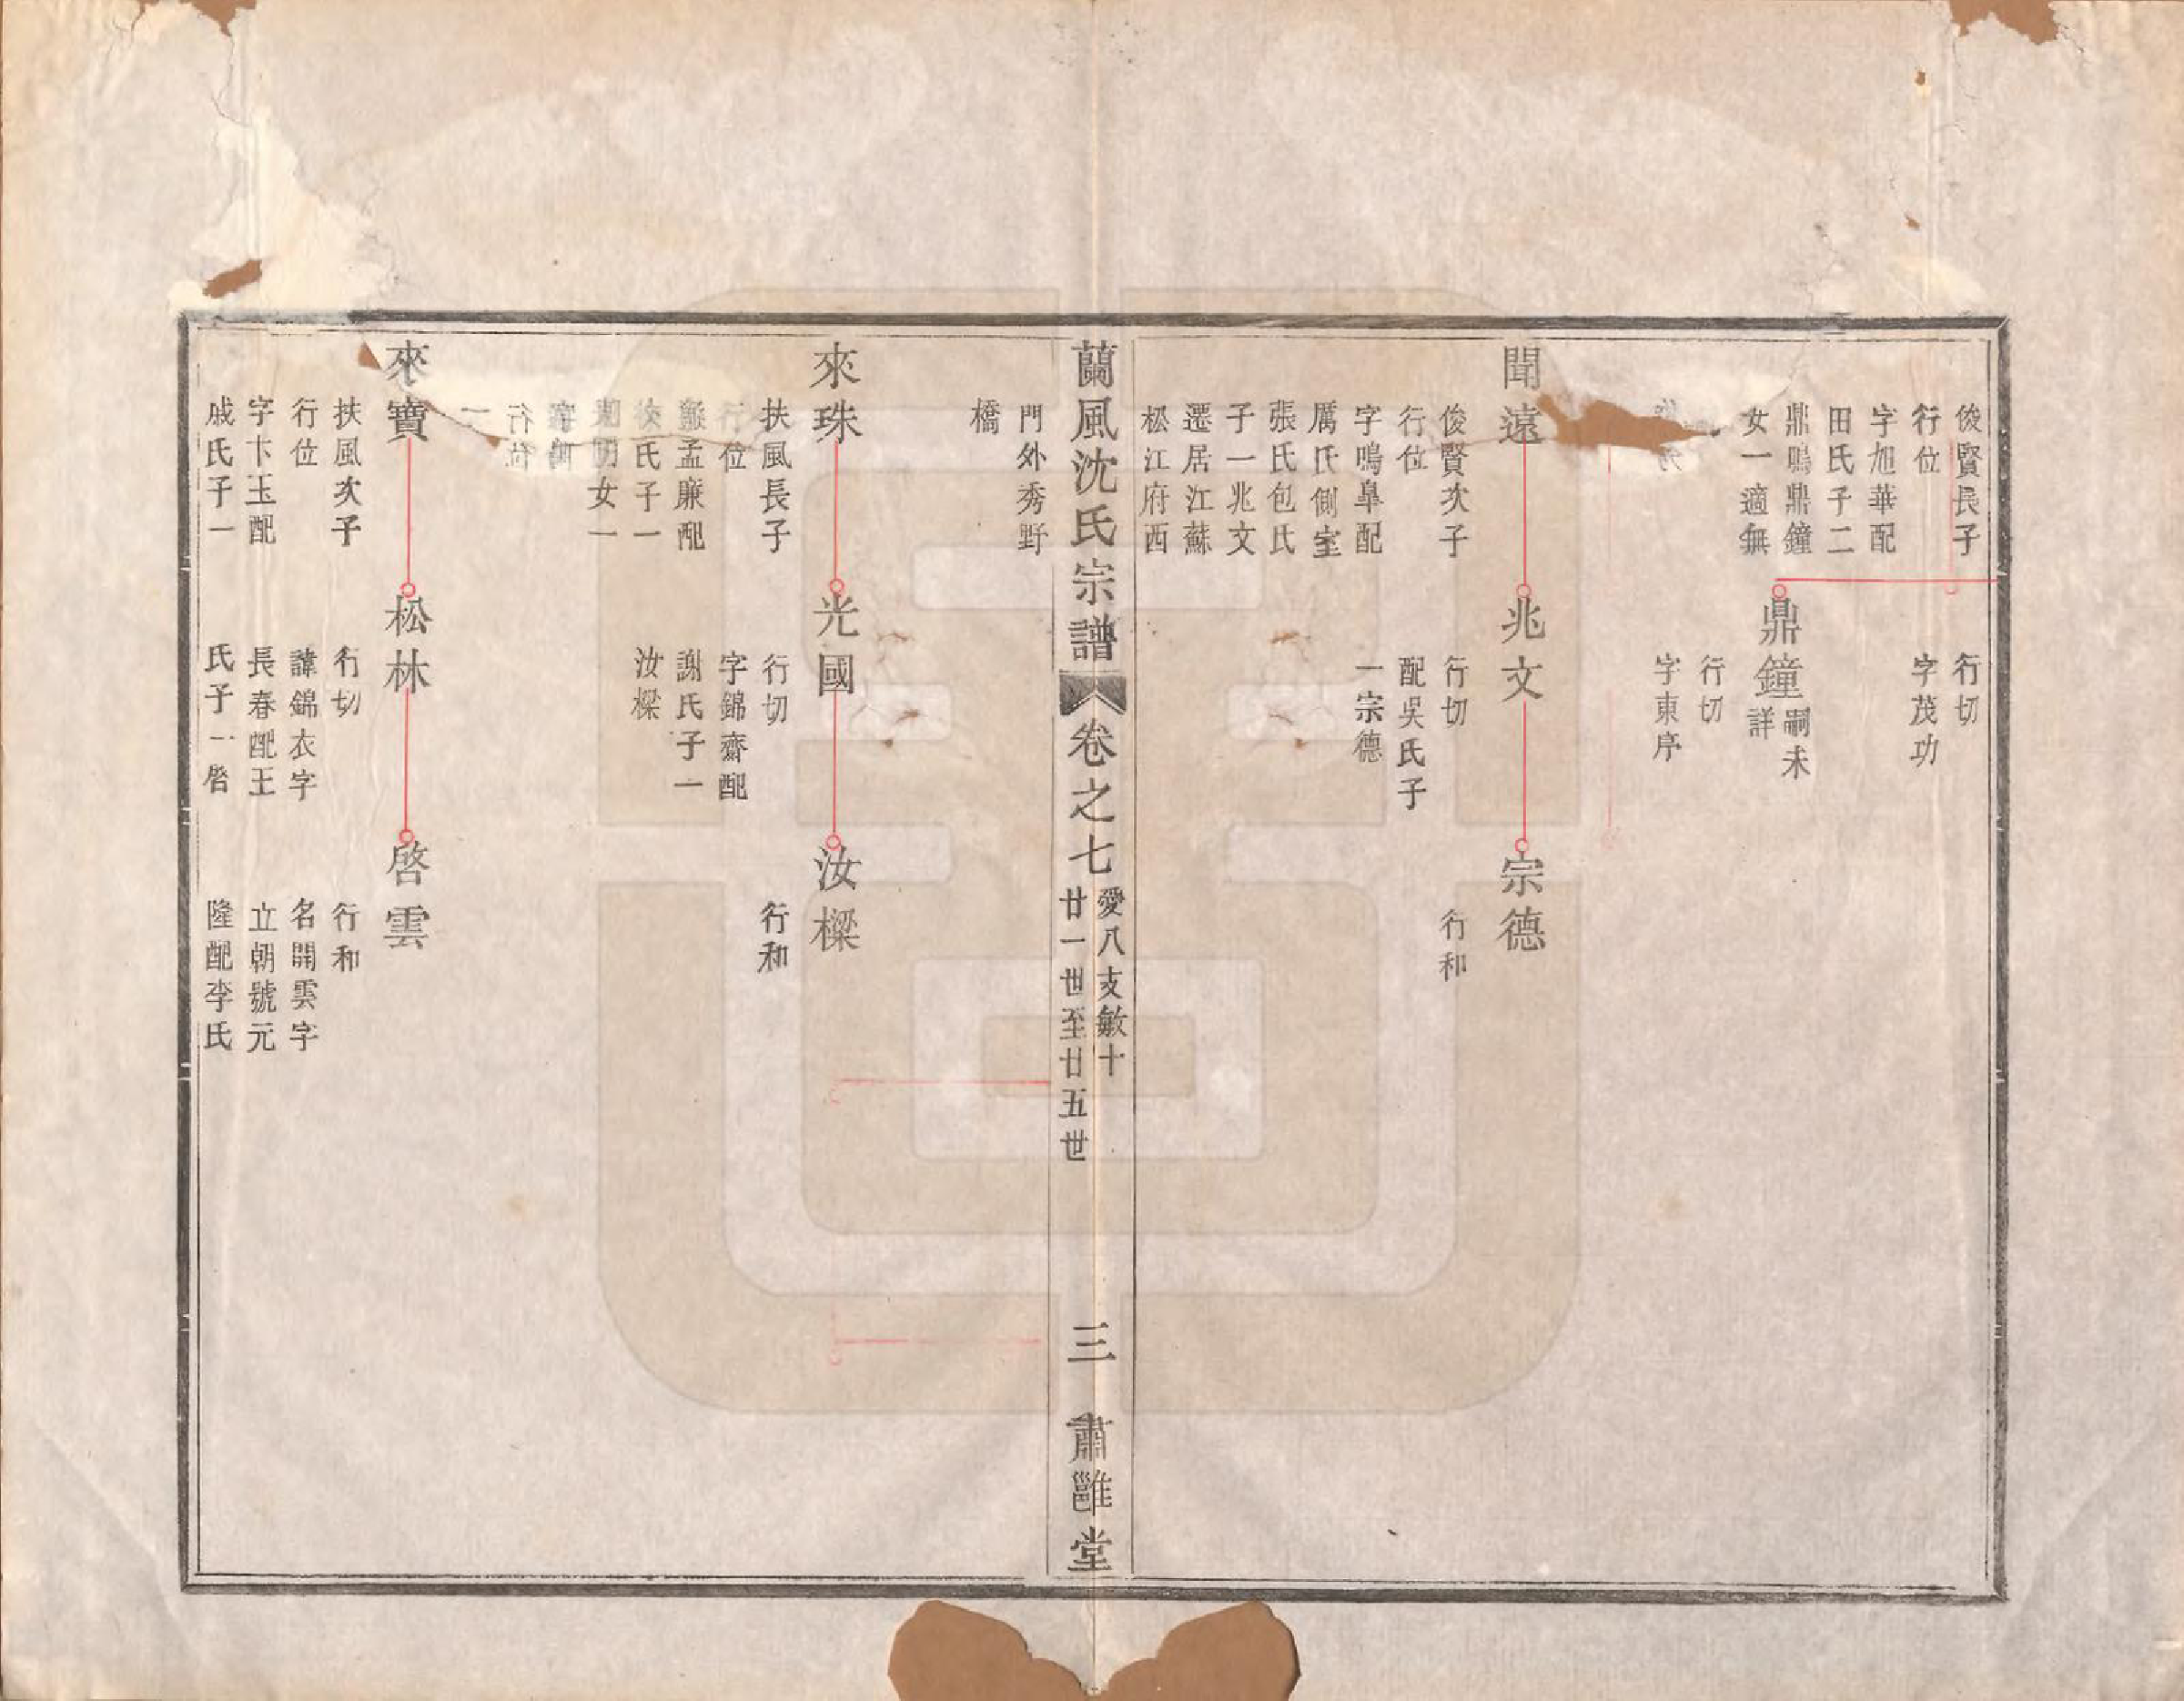 俊賢長子
行位
字旭華配
田氏子二
鼎鳴鼎鐘
女一適無
行切
字茂功
鼎鐘嗣未詳
行切
字東序
聞遠
俊賢次子
行位
字鳴皐配
厲氏側室
張氏包氏
子一兆文
遷居江蘇
松江府西
兆文
行切
配吳氏子
一宗德
宗德
行和
蘭風沈氏宗譜
卷之七
愛八支敏十
廿一世至廿五世
三
肅雝堂
門外秀野
橋
來珠
扶風長子
行位
孟廉配
氏子一
女一
光國
行切
字錦齋配
謝氏子一
汝樑
汝樑
行和
來寶
扶風次子
行位
字卞玉配
戚氏子一
松林
行切
諱錦衣字
長春配王
氏子一啓
啓雲
行和
名開雲字
立朝號元
隆配李氏